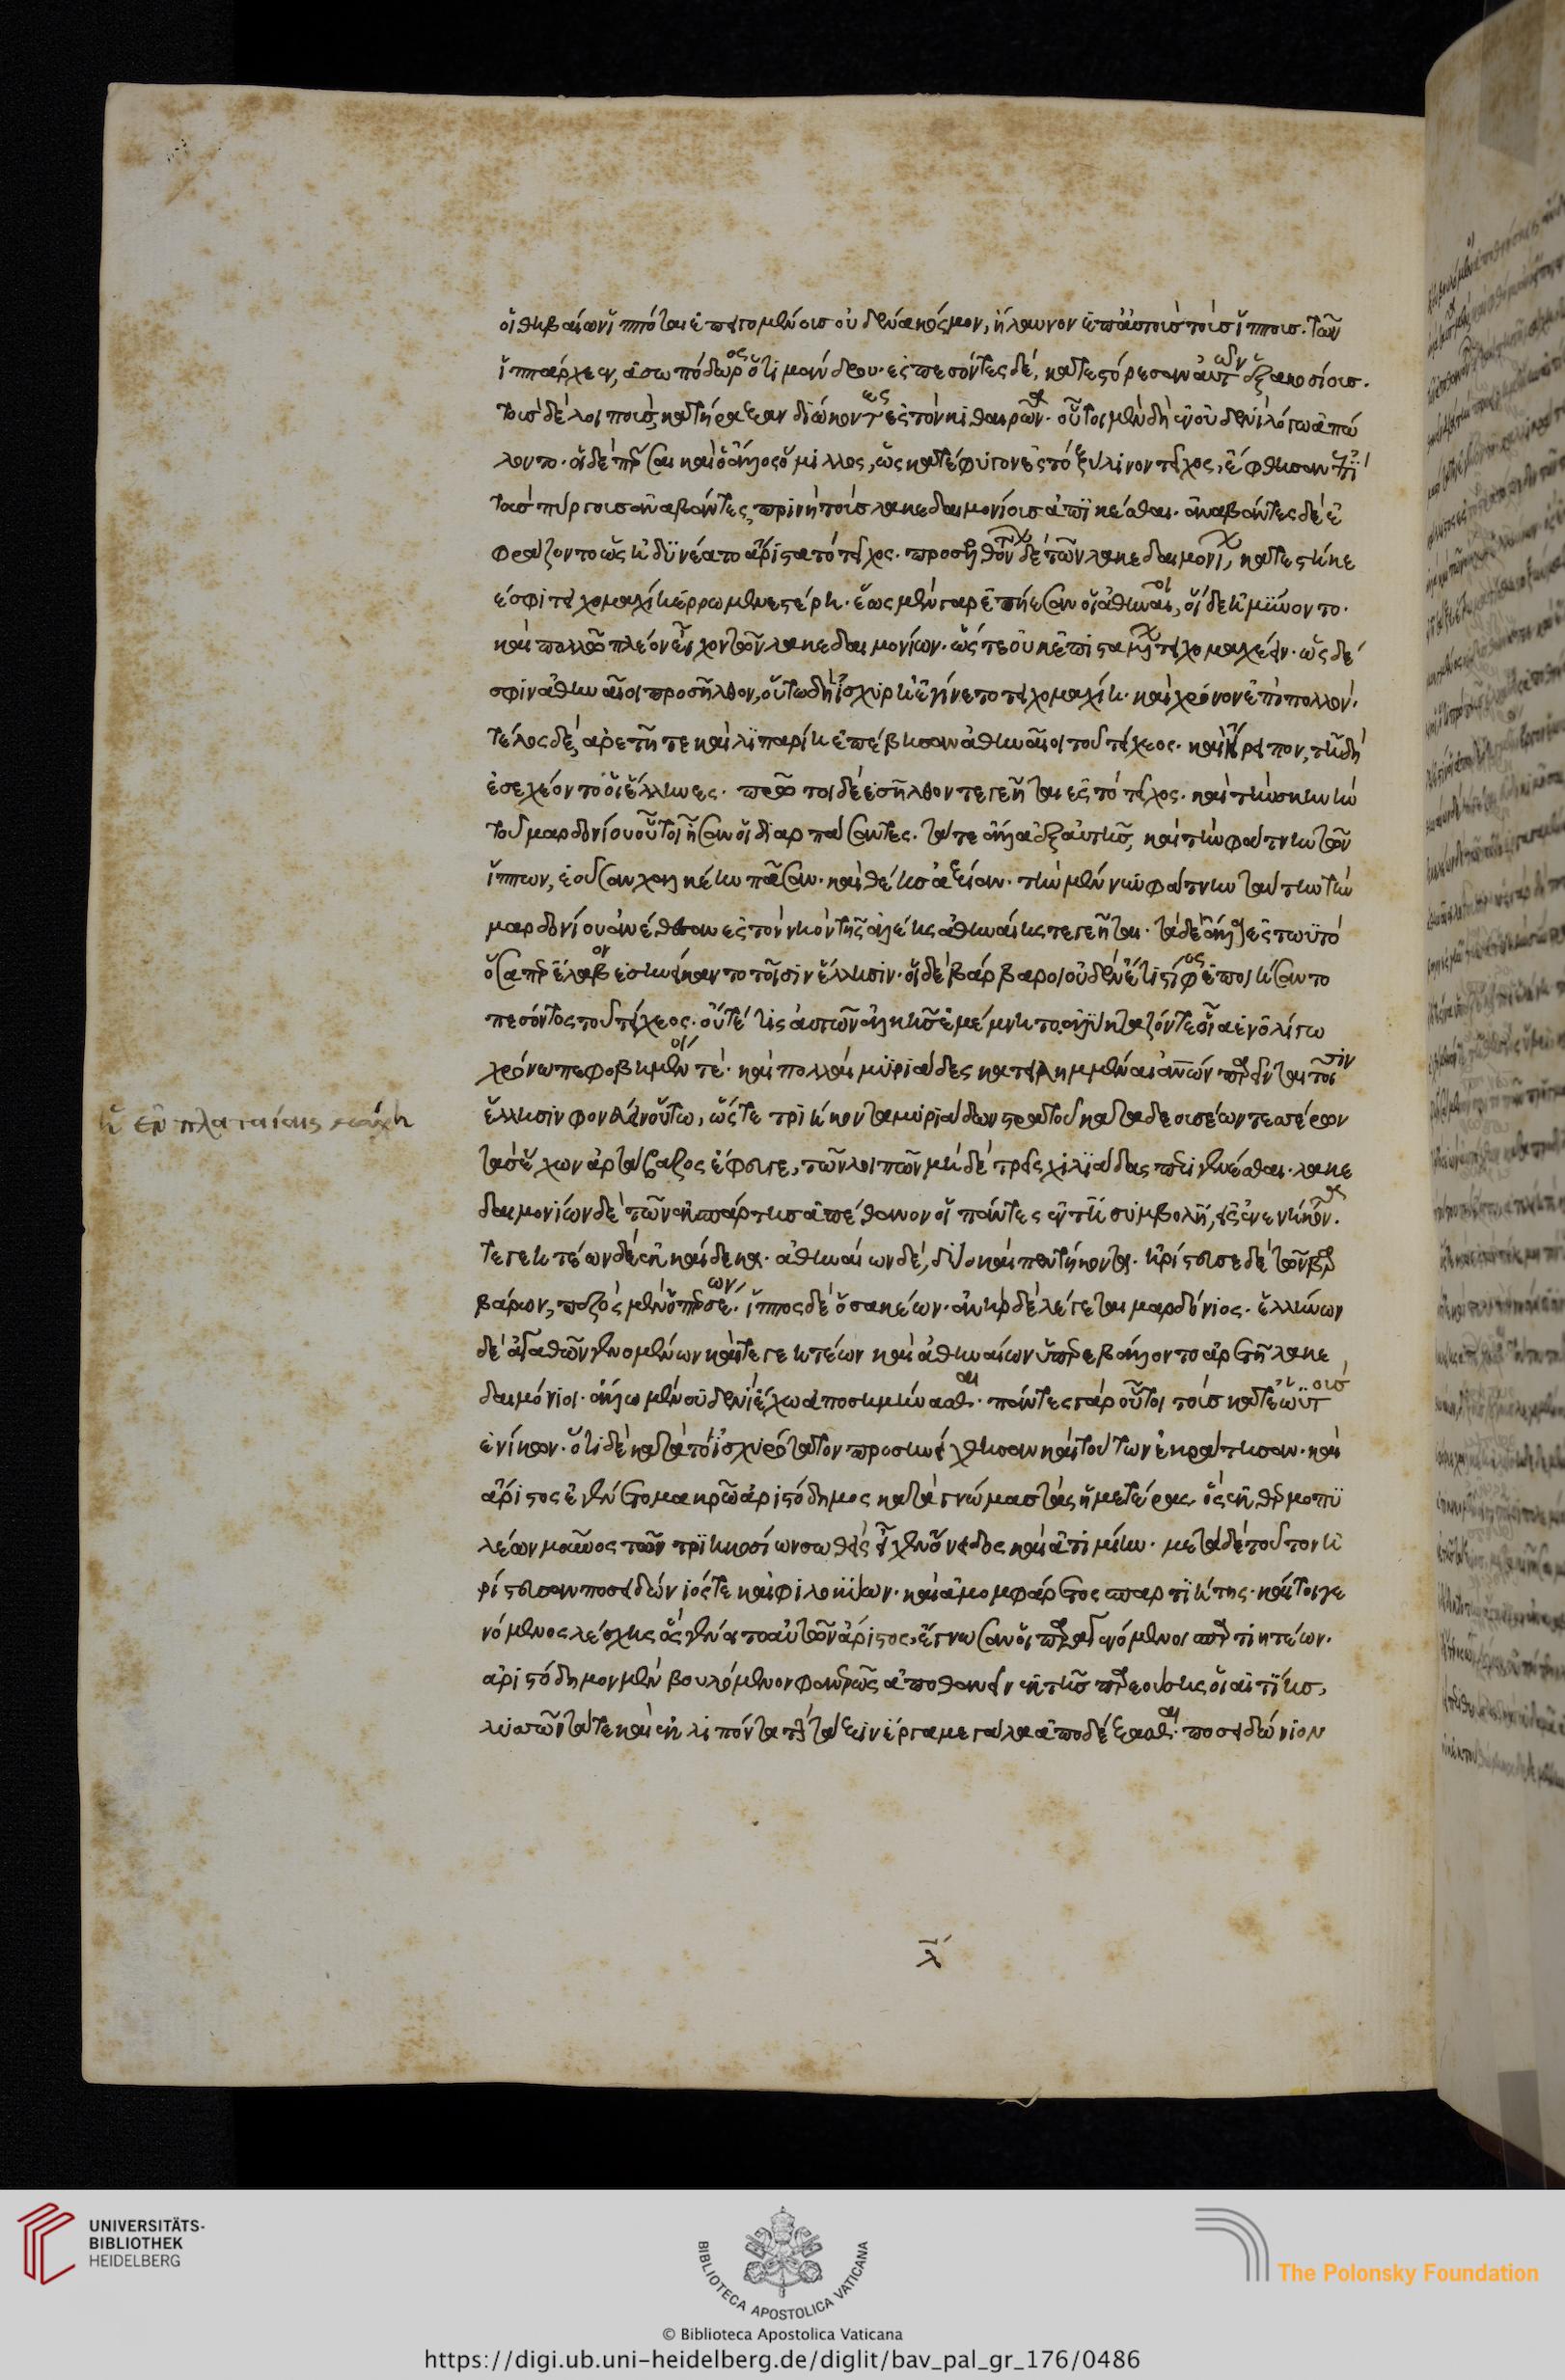 οἱ θηβαίων ἱππόται ἐπειγομένους οὐδένα κόσμον, ἤλαυνον ἐπ' αὐτοὺς τοὺς ἵππους. τῶν
ἱππάρχεεν, ἀσωπόδωρος ὁ τιμάνδρου· ἐσπεσόντες δέ, κατεστόρεσαν αὐτῶν ἑξακοσίους.
τοὺς δὲ λοιποὺς, κατήραξαν διώκοντες ἐς τὸν κιθαιρῶνα. οὗτοι μὲν δὴ ἐν οὐδενὶ λόγω ἀπώ
λοντο. οἱ δὲ πέρσαι καὶ ὁ ἄλλος ὅμιλλος, ὡς κατέφυγον ἐς τὸ ξύλινον τεῖχος, ἔφθησαν ἐπὶ
τοὺς πύργους ἀναβάντες, πρὶν ἢ τοὺς λακεδαιμονίους ἀπικέσθαι. ἀναβάντες δὲ ἐ
φράξοντο ὡς ἠδυνέατο ἄριστα τὸ τεῖχος. προσελθόντων δὲ τῶν λακεδαιμονίων, κατεστήκε
έ σφι τειχομαχίη ἐρρωμενεστέρη. ἕως μὲν γὰρ ἐπήεσαν οἱ ἀθηναῖοι, οἱ δὲ ἠμύνοντο.
καὶ πολλῶ πλέον εἶχον τῶν λακεδαιμονίων. ὥστε οὐκ ἐπισταμένων τειχομαχέειν. ὡς δέ
σφιν ἀθηναῖοι προσῆλθον, οὕτω δὴ ἰσχυρὴ ἐγίνετο τειχομαχίη. καὶ χρόνον ἐπὶ πολλόν.
τέλος δὲ, ἀρετῇ τε καὶ λιπαρίη ἐπέβησαν ἀθηναῖοι τοῦ τείχεος. καὶ ἤρειπον, τῇ δὴ
ἐσεχέοντο οἱ ἕλληνες. πρῶτοι δὲ ἐσῆλθον τεγεῆται ἐς τὸ τεῖχος. καὶ τὴν σκηνὴν
τοῦ μαρδονίου οὗτοι ἦσαν οἱ διαρπάσαντες. τά τε ἄλλα ἐξ αὐτῆς, καὶ τὴν φάτνην τῶν
ἵππων, ἐοῦσαν χαλκέην πᾶσαν. καὶ θέης ἀξίαν. τὴν μέν νυν φάτνην ταύτην τὴν
μαρδονίου ἀνέθεσαν ἐς τὸν νηὸν τῆς ἀλέης ἀθηναίης τεγεῆται. τὰ δὲ ἄλλα ἐς τὠυτό
ὅσα περ ἔλαβον ἐσήνεικαν τοῖσιν ἕλλησιν. οἱ δὲ βάρβαροι οὐδὲν ἔτι στίφος ἐποιήσαντο
πεσόντος τοῦ τείχεος. οὔτέ τις αὐτῶν ἀλκῆς ἐμέμνητο. ἀλύκταζόν τε οἷα ἐν ὀλίγω
χρόνω πεφοβημένοι τέ. καὶ πολλαὶ μυριάδες κατειλημμέναι ἀνθρώπων. παρεῖν τε τοῖσιν
ἕλλησιν φονεύειν οὕτω, ὥστε τριήκοντα μυριάδων στρατοῦ καταδεουσέων τεσσέρων
τὰς ἔχων ἀρτάβαζος ἔφευγε, τῶν λοιπῶν μηδὲ τρεῖς χιλιάδας περιγενέσθαι. λακε
δαιμονίων δὲ τῶν ἐκ σπάρτης ἀπέθανον οἱ πάντες ἐν τῇ συμβολῇ, εἷς ἐνενήκοντα.
τεγεητέων δὲ, ἑκκαίδεκα. ἀθηναίων δὲ, δύο καὶ πεντήκοντα. ἠρίστευσε δὲ τῶν βαρ
βάρων, πεζὸς μὲν ὁ περσέων. ἵππος δὲ ὁ σακέων. ἀνὴρ δὲ λέγεται μαρδόνιος. ἑλλήνων
δὲ ἀγαθῶν γενομένων καὶ τεγεητέων καὶ ἀθηναίων ὑπερεβάλλοντο ἀρετῇ λακε
δαιμόνιοι. ἄλλω μὲν οὐδενὶ ἔχω ἀποσημήνασθαι. πάντες γὰρ οὗτοι τοὺς κατ' ἑωϋτοὺς
ἐνίκων. ὅτι δὲ κατὰ τὸ ἰσχυρότατον προσηνείχθησαν καὶ τούτων ἐκράτησαν. καὶ
ἄριστος ἐγένετο μακρῶ ἀριστόδημος κατὰ γνώμας τὰς ἡμετέρας. ὃς ἐκ θερμοπυ
λέων μοῦνος τῶν τριηκοσίων σωθεὶς εἶχεν ὄνειδος καὶ ἀτιμίην. μετὰ δὲ τοῦτον ἠ
ρίστευσαν ποσειδώνιός τε καὶ φιλοκύων. καὶ ἀμομφάρετος σπαρτιήτης. καίτοι γε
νόμενος λέσχης ὃς γένοιτο αὐτῶν ἄριστος, ἔγνωσαν οἱ παραγενόμενοι σπαρτιητέων.
ἀριστόδημον μὲν βουλόμενον φανερῶς ἀποθανεῖν ἐκ τῆς παρεούσης οἱ αἰτίης,
λυσσῶντά τε καὶ ἐκλιπόντα τὴν τάξιν ἔργα μεγάλα ἀποδέξασθαι. ποσειδώνιον
ἡ ἐν πλαταίαις μάχη
λ̅ʹ
UNIVERSITÄTS-
BIBLIOTHEK
HEIDELBERG
BIBLIOTECA APOSTOLICA VATICANA
© Biblioteca Apostolica Vaticana
The Polonsky Foundation
https://digi.ub.uni-heidelberg.de/diglit/bav_pal_gr_176/0486